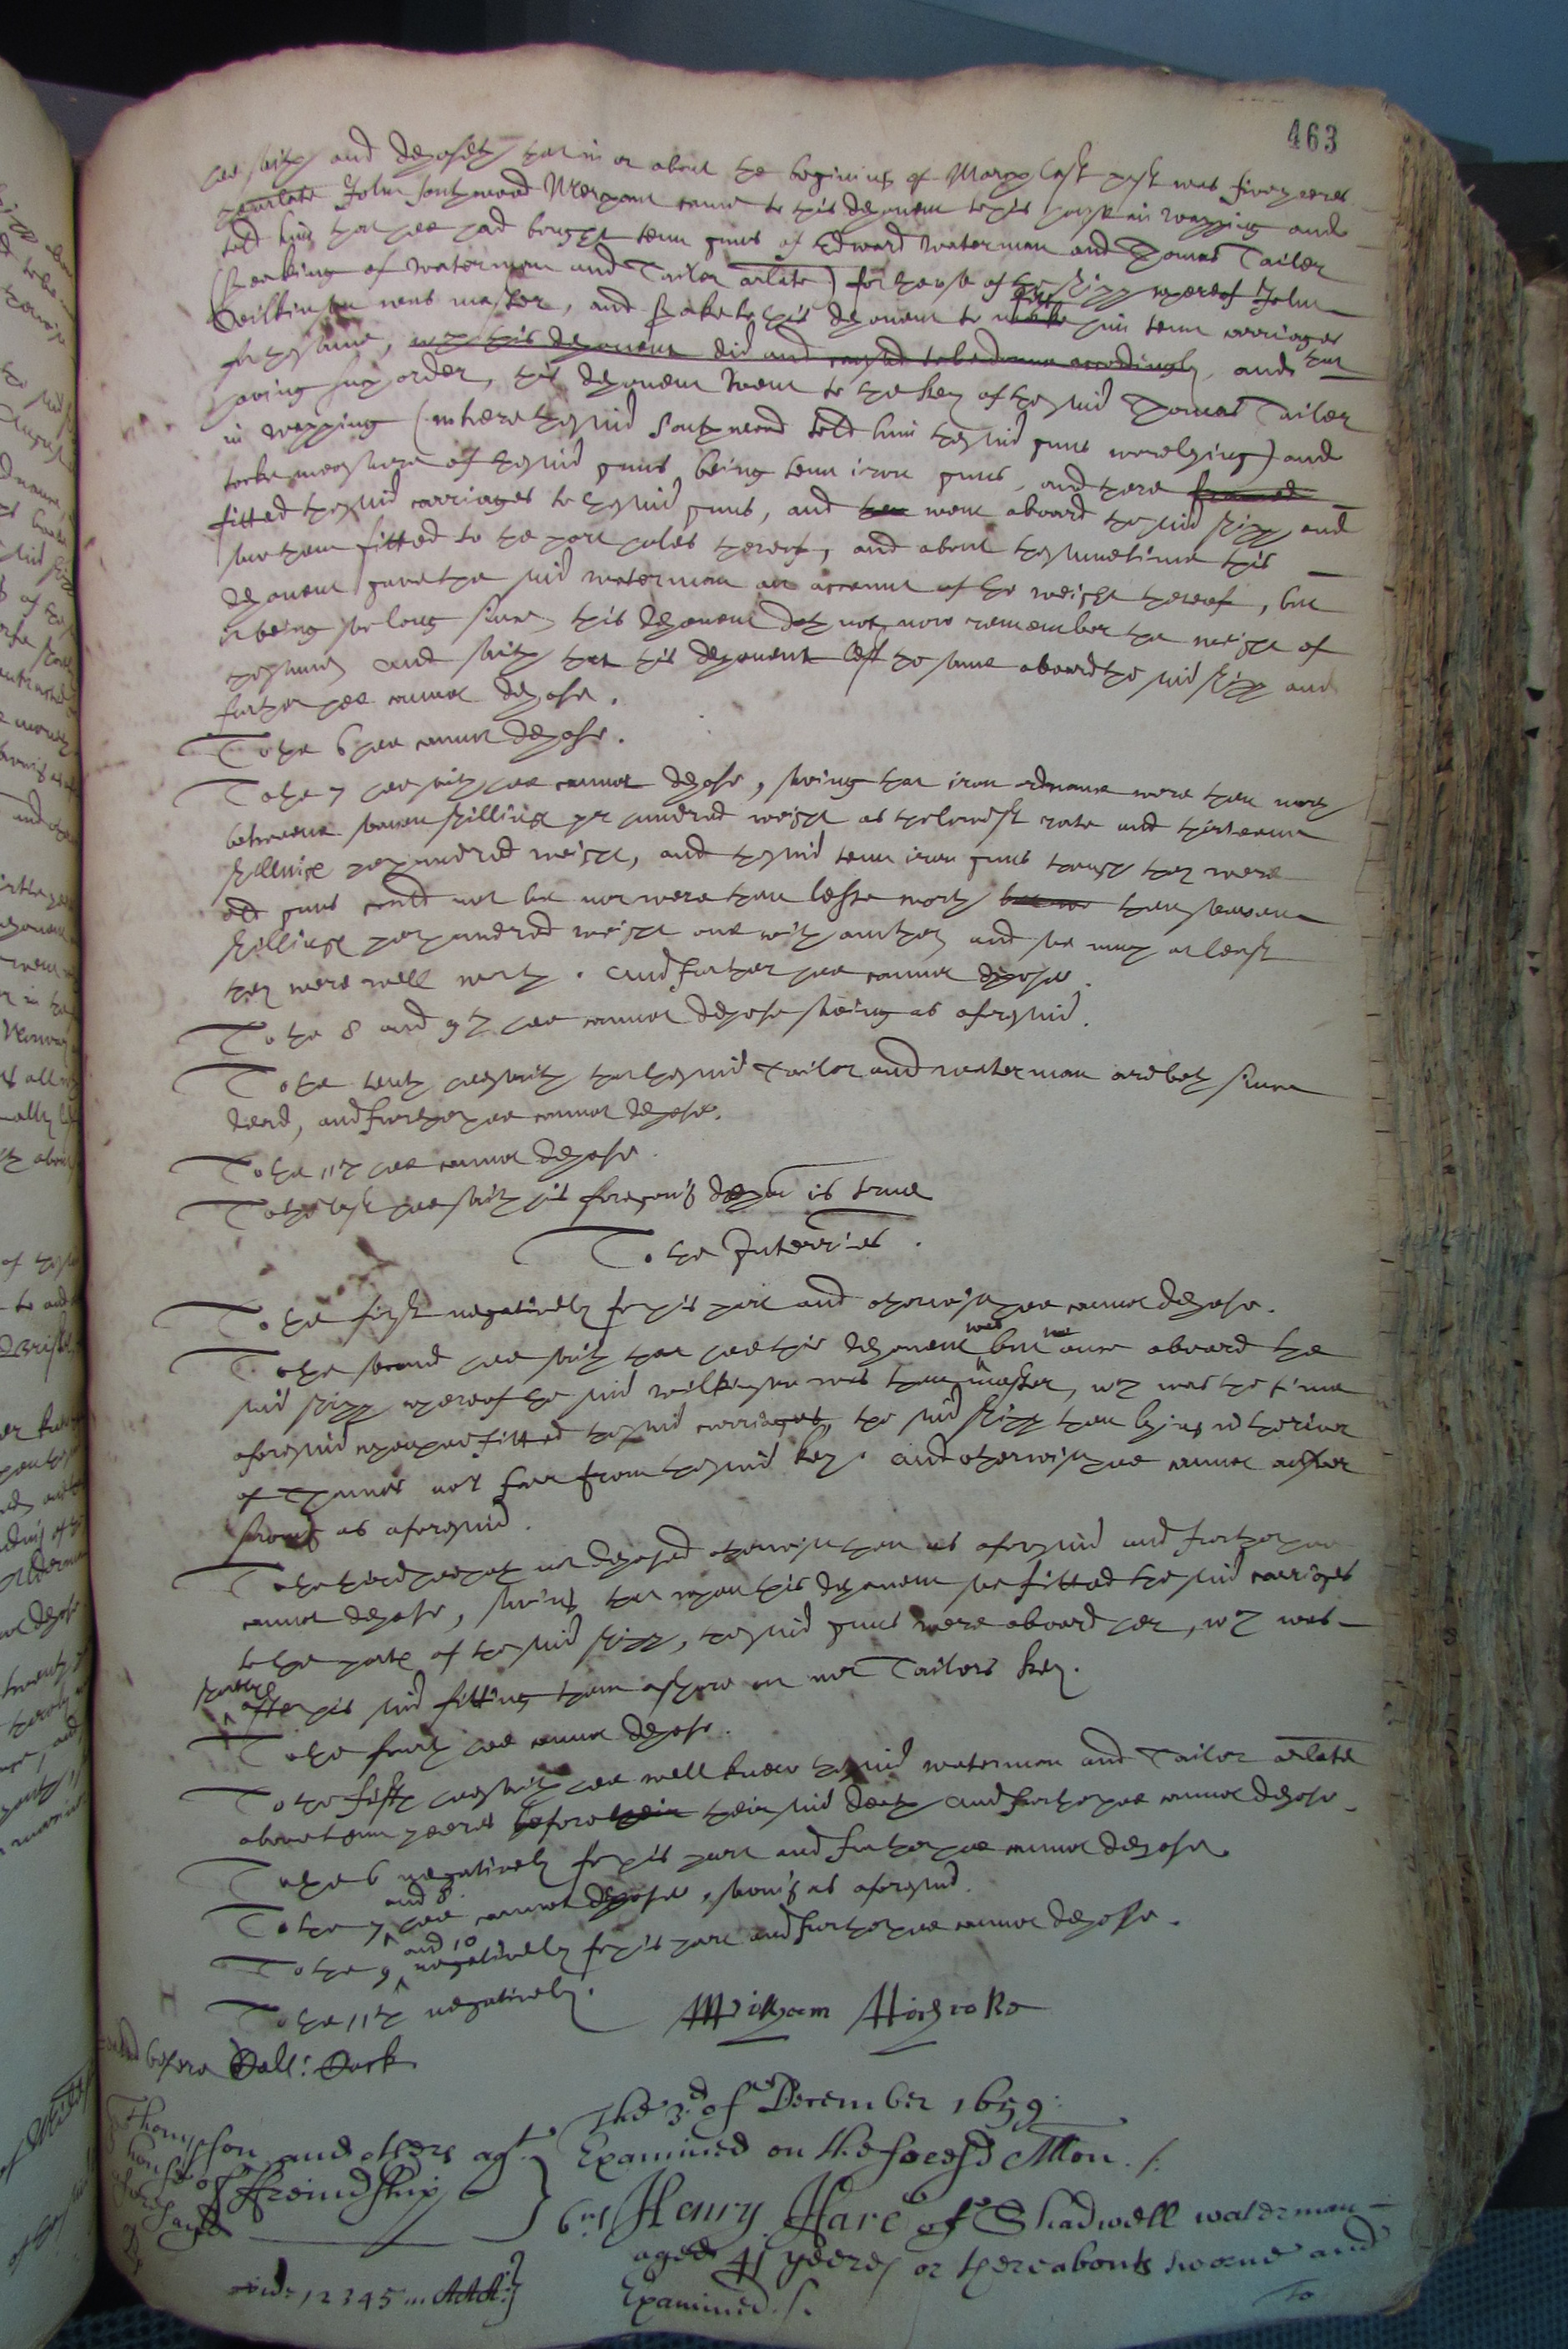 463
hee saith and deposeth that in or about the begining of March last past was five yeeres
the arlate John Southwood Merchant came to this deponent to his house in Wapping and
told him that hee had bought tenn guns of Edward Waterman and Thomas Tailer
(speaking of Waterman and Tailor arlate) for the use of the shipp whereof John
Wilkinson was master, and spake to this deponent to make fitt him tenn carriages
for the same, which this deponent did and caused to be donne accordingly, and that
having such order, this deponent went to the key of the said Thomas Tailer
in Wapping (where the said Southwood told him the said guns were lying) and
tooke measure of the said guns being tenn iron guns, and there framed
fitted the said carriages to the said guns, and then went aboard the said shipp and
saw them fitted to the port holes thereof, and about the same time this
deponent gave the said Waterman an accompt of the weight thereof, but
it being soe long since, this deponent doth not now remember the weight of
the same, and saith that this deponent left the same aboard the said shipp and
further hee cannot depose.
To the 6 hee cannot depose.
To the 7 hee saith hee cannot depose, saving that iron ordnance were then worth
betweene seaven shillings per hundred weight as the lowest rate and thirteene
shillings per hundred weight, and the said tenn iron guns though they were
old guns could not be nor were then lesse worth then seaven
shillings per hundred weight one with another, and soe much at least
they were well worth. And further hee cannot depose.
To the 8 and 9th hee cannot depose saving as aforesaid.
To the tenth hee saith that the said Tailor and Waterman are both since
dead, and further hee cannot depose.
To the 11th hee cannot depose.
To the last hee saith his foregoing deposition is true
To the Interries.
To the first negatively for his part and otherwise hee cannot depose.
To the second hee saith that hee this deponent was but once aboard the
said shipp whereof the said Wilkinson was then master, which was the time
aforesaid when hee fitted the said carriages, the said shipp then lying in the river
of Thames not farr from the said key. And otherwise hee cannot answer
saving as aforesaid.
To the third hee hath not deposed otherwise then as aforesaid and further hee
cannot depose, saving that when this deponent soe fitted the said carriages
to the ports of the said shipp, the said guns were aboard her, which was
shortly after his said fitting them ashore on Tailors key.
To the fourth hee cannot depose.
To the fifth hee saith hee well knew the said Waterman and Tailor arlate
about tenn yeeres before their their said death, and further hee cannot depose.
To the 6 negatively for his part and further hee cannot depose.
To the 7 and 8 hee cannot depose, saving as aforesaid.
To the 9 and 10 negatively for his part and further hee cannot depose.
To the 11th negatively.
William
before
The 3d of December 1659:
Examined on the foresd Allon.
Thompson and others agt
ffreindship
Henry Hare of Shadwell waterman
aged 41 yeeres or thereabouts sworne and
Examined.
12345
To